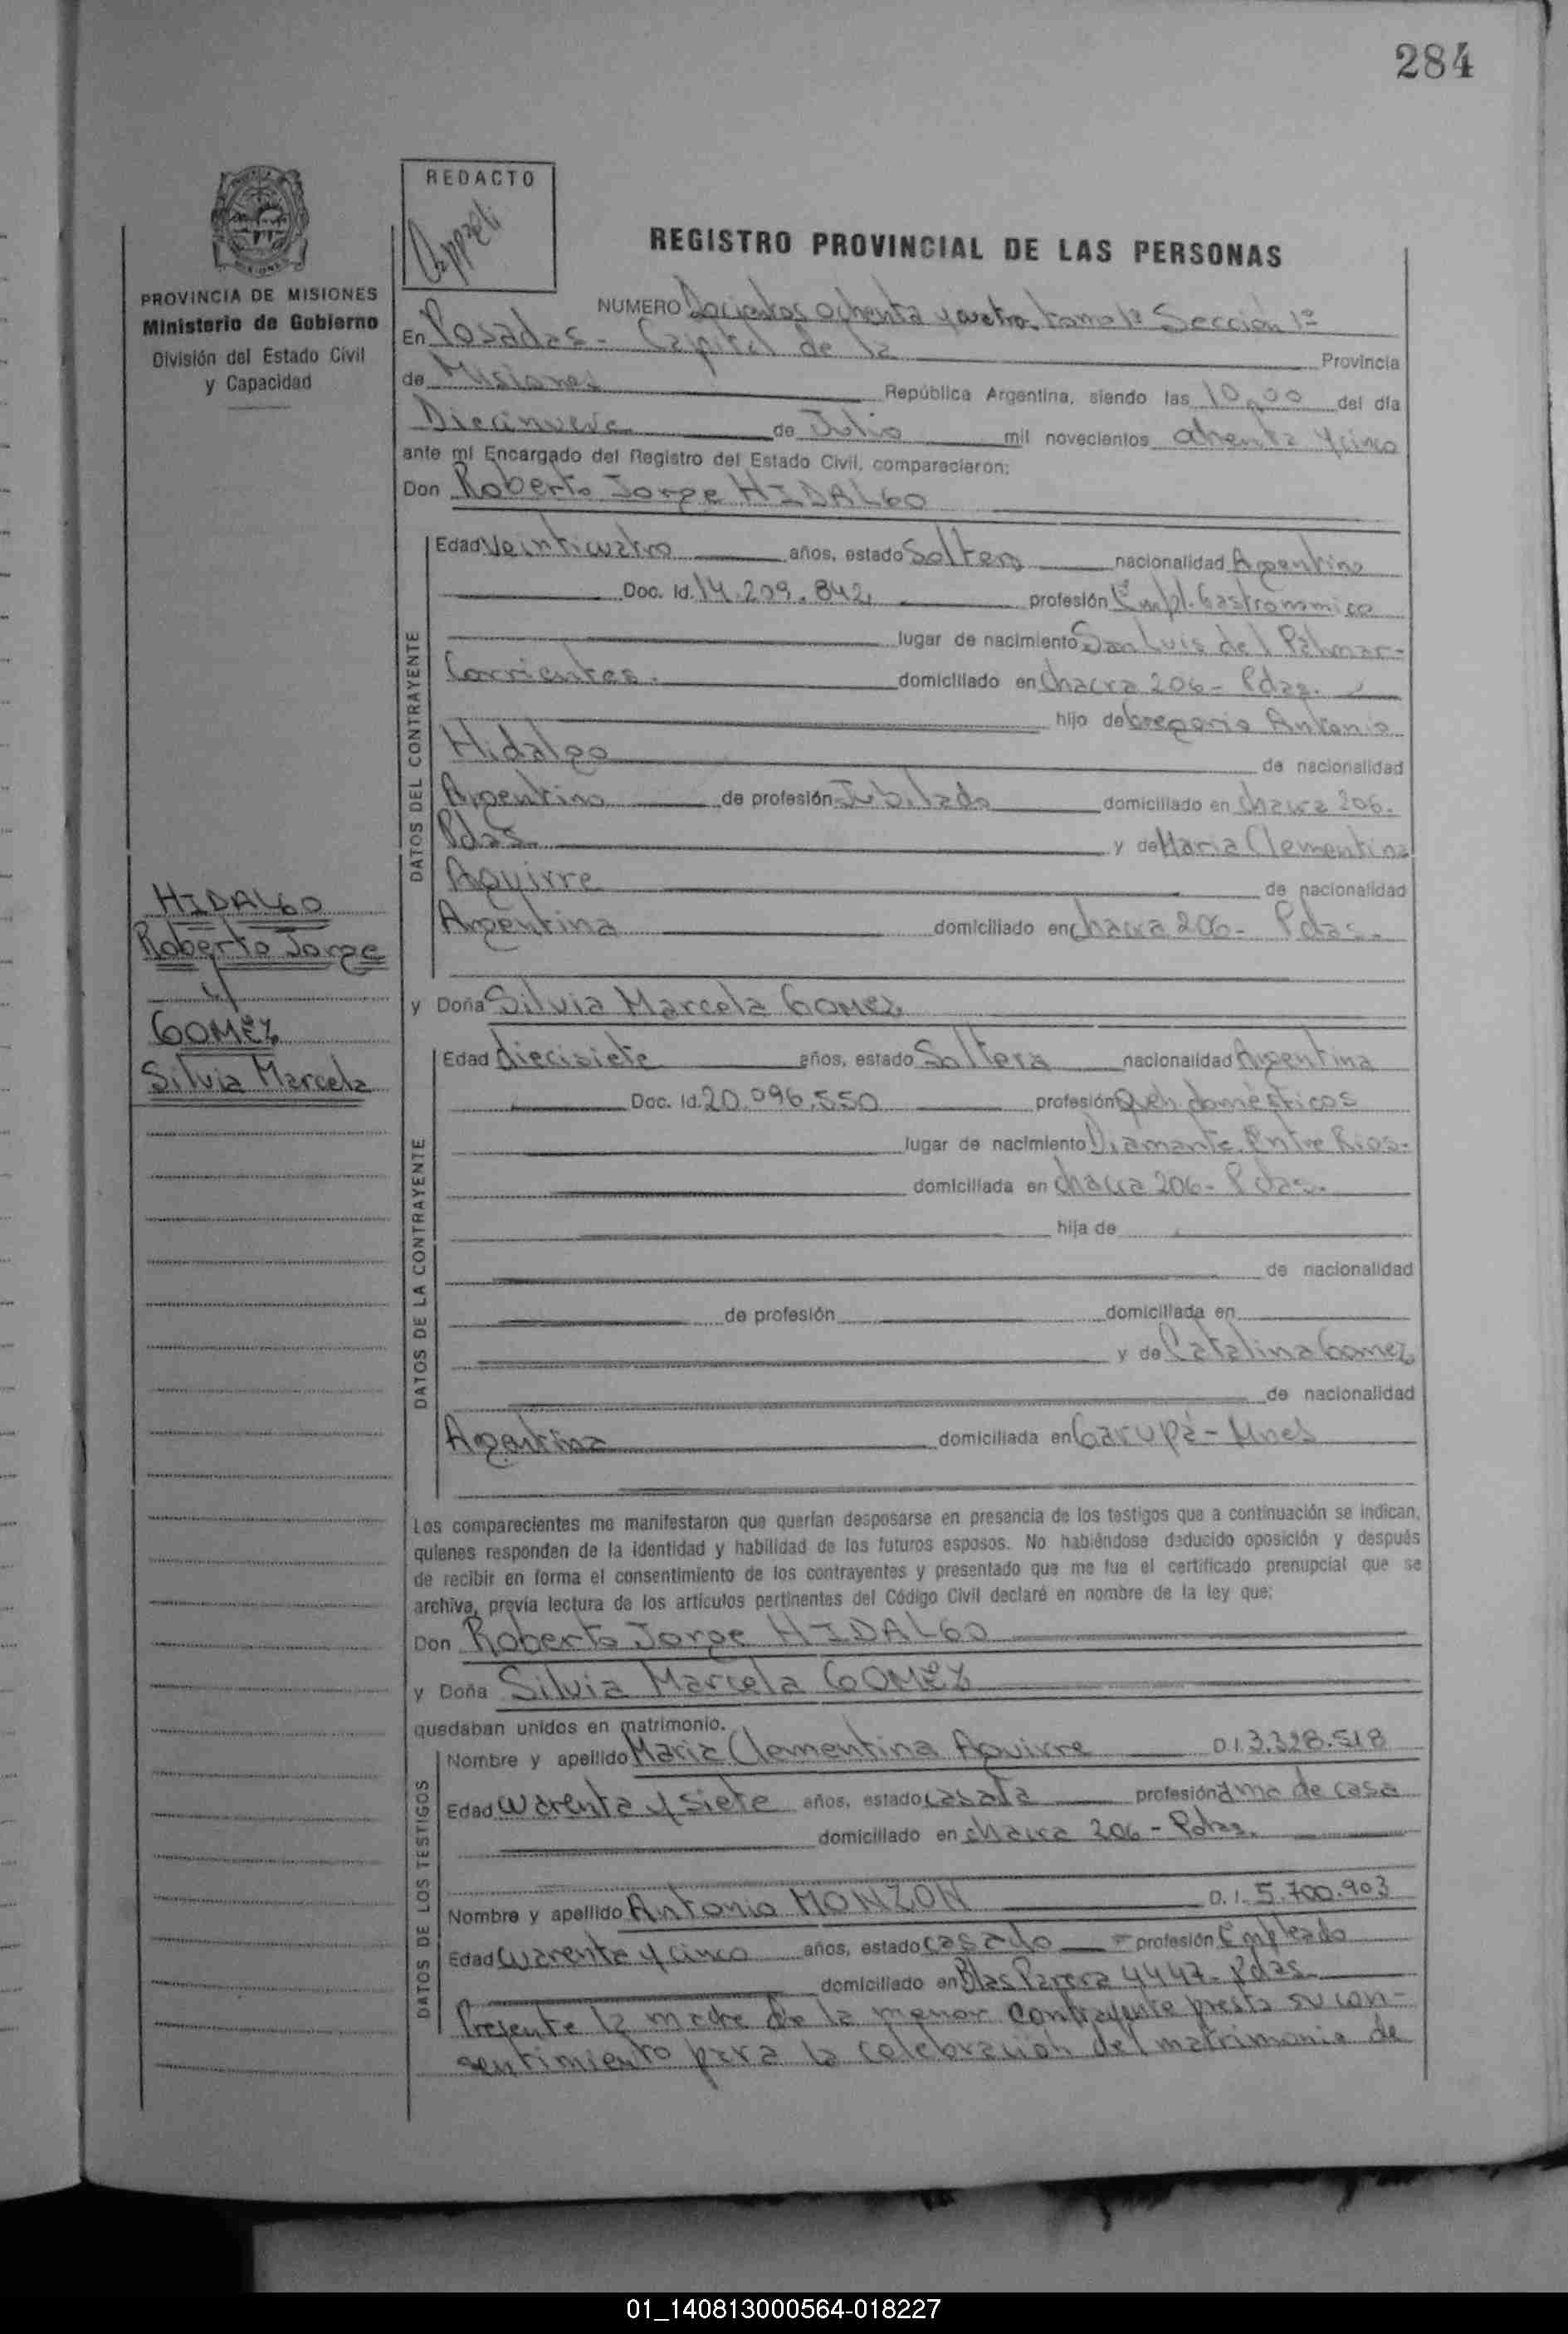 284
REDACTO
REGISTRO PROVINCIAL DE LAS PERSONAS
PROVINCIA DE MISIONES
Ministerio de Gobierno
División del Estado Civil
y Capacidad
NUMERO Docientos ochenta y cuatro tomo 1º Sección 1º
En Posadas - Capital de la Provincia
de Misiones República Argentina, siendo las 10,00 del día
Diecinueve de Julio mil novecientos ochenta y cinco
ante mí Encargado del Registro del Estado Civil, comparecieron:
Don Roberto Jorge HIDALGO
DATOS DEL CONTRAYENTE
Edad Veinticuatro años, estado Soltero nacionalidad Argentino
Doc. Id. 14.209.842 profesión Empl. Gastronomico
lugar de nacimiento San Luis del Palmar-
Corrientes. domiciliado en Chacra 206 - Pdas.
hijo de Gregorio Antonio
Hidalgo de nacionalidad
Argentino de profesión Jubilado domiciliado en chacra 206.
Pdas. y de Maria Clementina
Aguirre de nacionalidad
Argentina domiciliado en chacra 206 - Pdas.
HIDALGO
Roberto Jorge
y
GOMEZ
Silvia Marcela
y Doña Silvia Marcela GOMEZ
DATOS DE LA CONTRAYENTE
Edad diecisiete años, estado Soltera nacionalidad Argentina
Doc. Id. 20.096.550 profesión Queh. domésticos
lugar de nacimiento Diamante. Entre Rios.
domiciliada en chacra 206 - Pdas.
hija de
de nacionalidad
de profesión domiciliada en
y de Catalina Gomez
de nacionalidad
Argentina domiciliada en Garupá - Mnes
Los comparecientes me manifestaron que querían desposarse en presencia de los testigos que a continuación se indican,
quienes responden de la identidad y habilidad de los futuros esposos. No habiéndose deducido oposición y después
de recibir en forma el consentimiento de los contrayentes y presentado que me fue el certificado prenupcial que se
archiva, previa lectura de los artículos pertinentes del Código Civil declaré en nombre de la ley que:
Don Roberto Jorge HIDALGO
y Doña Silvia Marcela GOMEZ
quedaban unidos en matrimonio.
DATOS DE LOS TESTIGOS
Nombre y apellido Maria Clementina Aguirre D.I. 3.328.518
Edad cuarenta y siete años, estado casada profesión ama de casa
domiciliado en chacra 206 - Pdas.
Nombre y apellido Antonio MONZON D.I. 5.700.903
Edad cuarenta y cinco años, estado casado profesión Empleado
domiciliado en Blas Parera 4447 - Pdas.
Presente la madre de la menor contrayente presta su con-
sentimiento para la celebración del matrimonio de
01_140813000564-018227